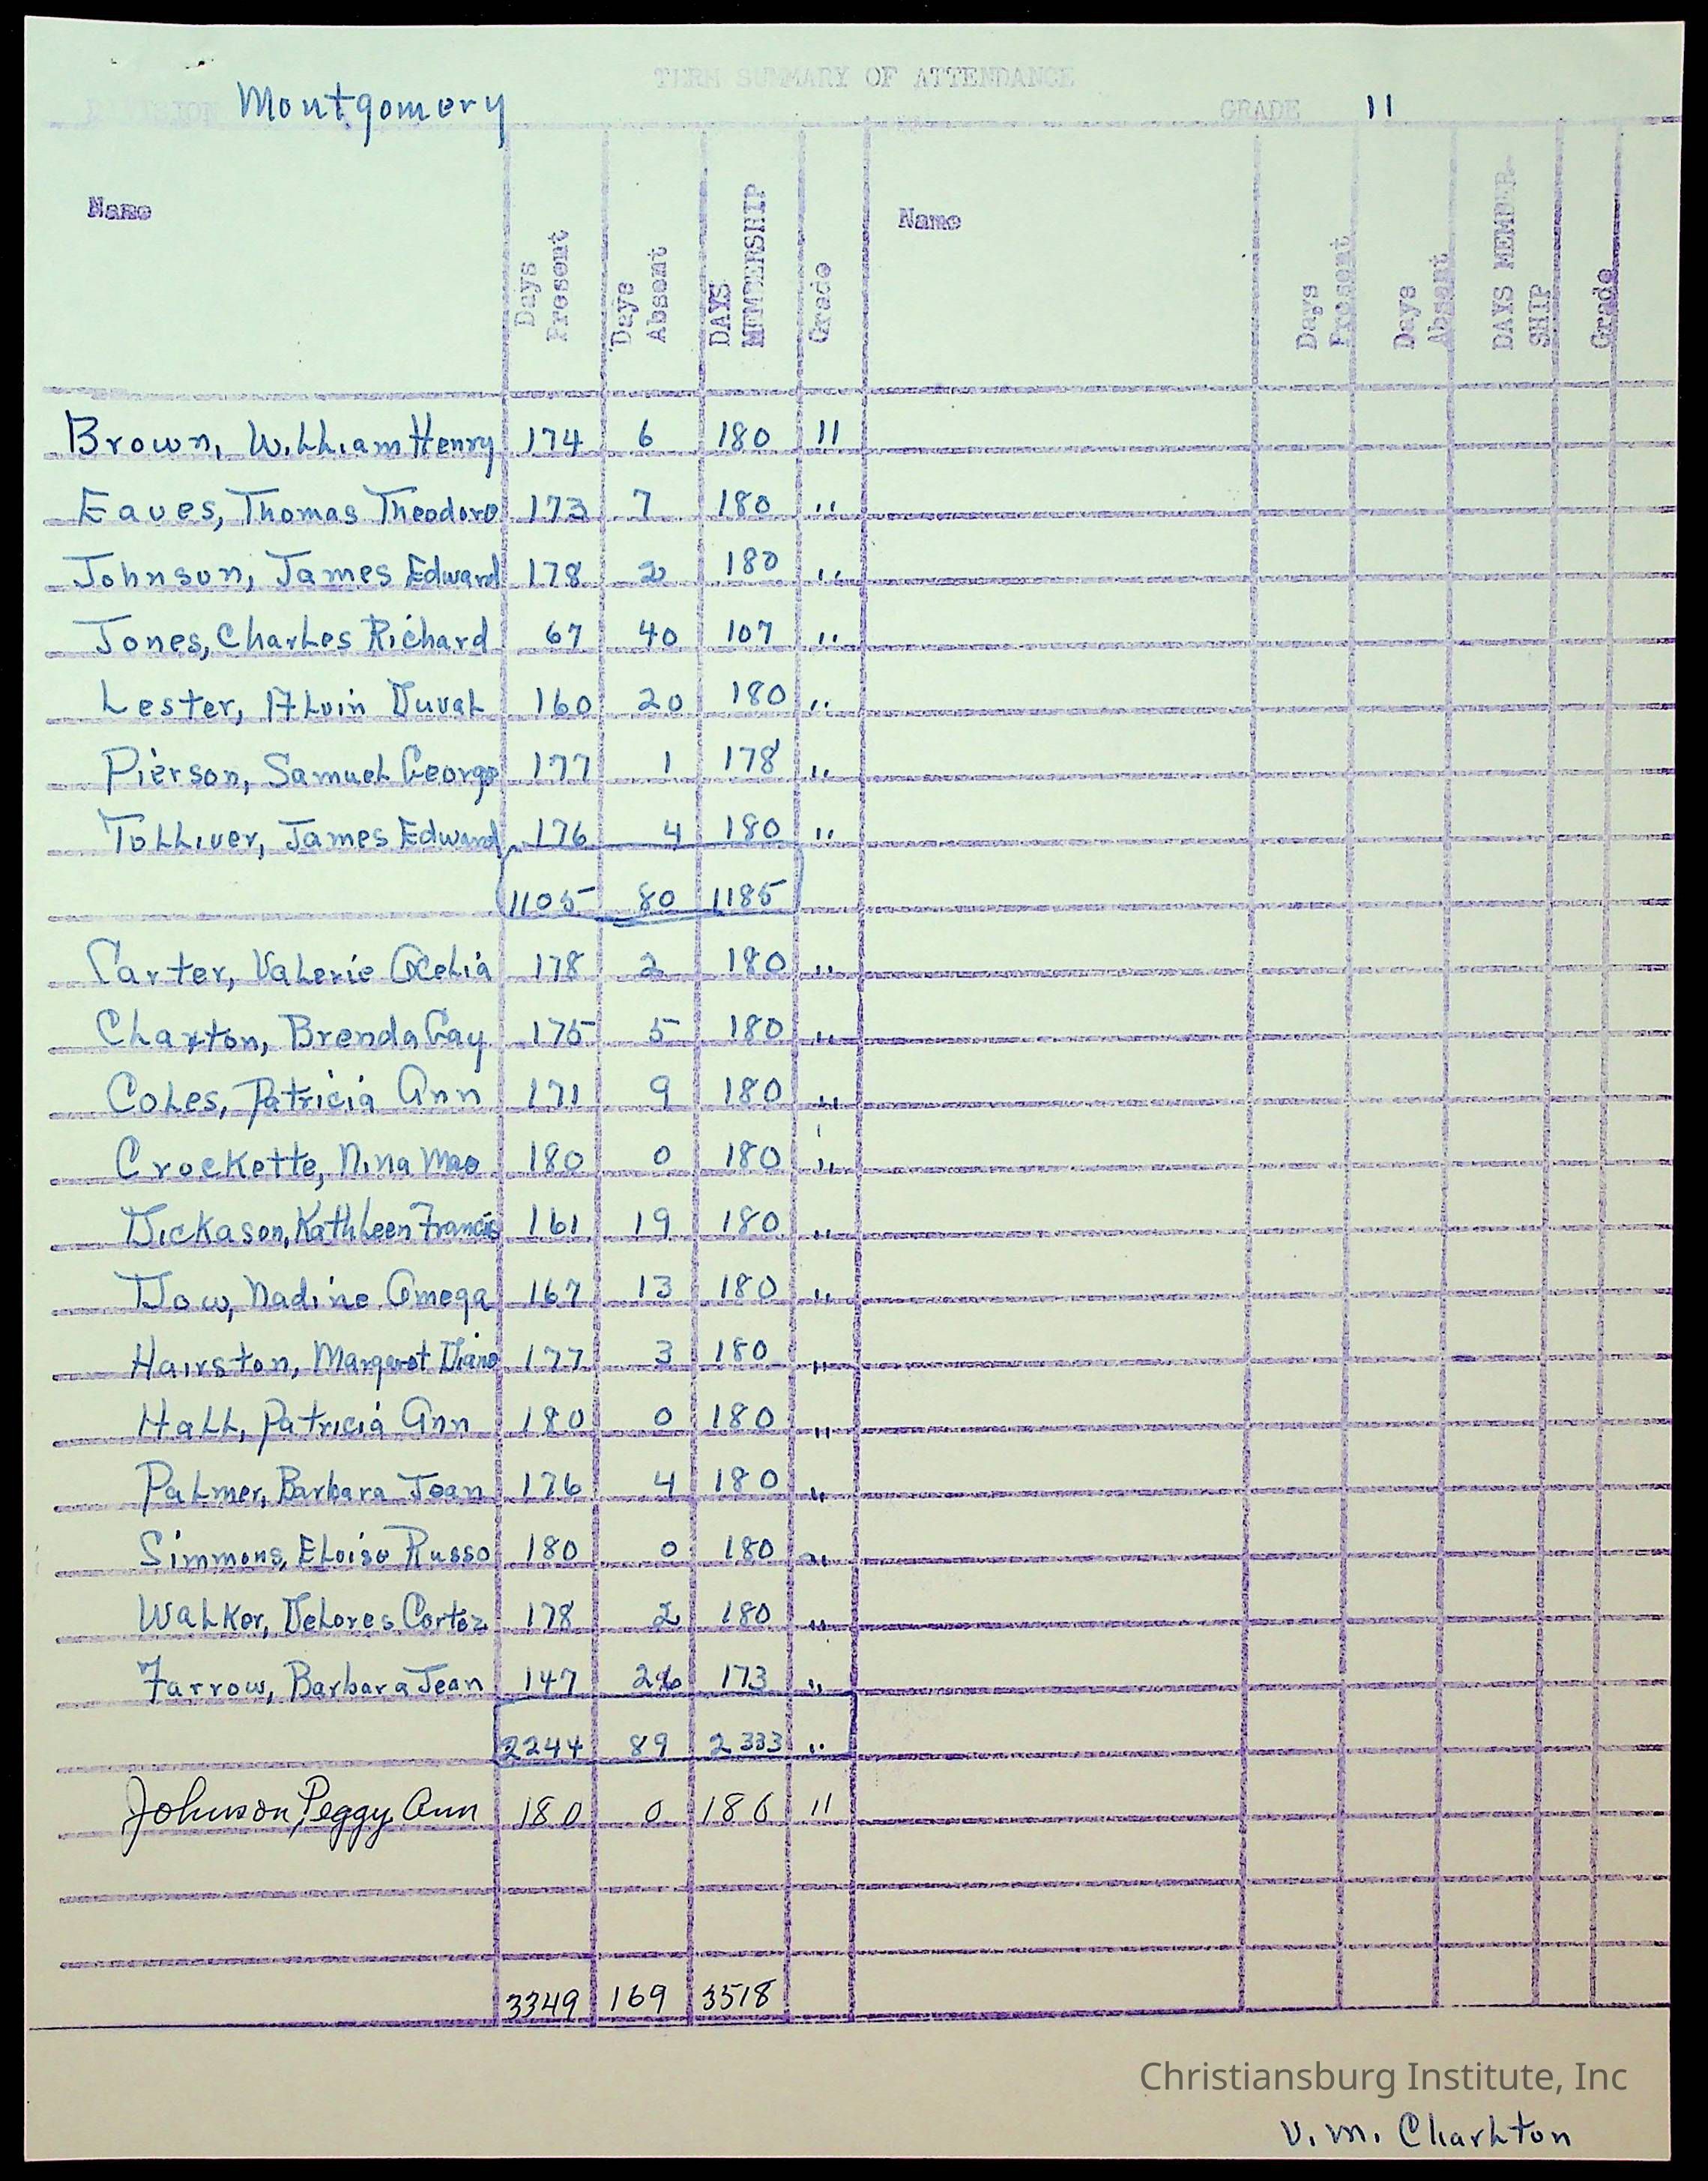 TERM SUMMARY OF ATTENDANCE
DIVISION Montgomery GRADE 11
Name Days Present Days Absent DAYS MEMBERSHIP Grade Name Days Present Days Absent DAYS MEMBER-SHIP Grade
Brown, William Henry 174 6 180 11
Eaves, Thomas Theodore 173 7 180 "
Johnson, James Edward 178 2 180 "
Jones, Charles Richard 67 40 107 "
Lester, Alvin Duval 160 20 180 "
Pierson, Samuel George 177 1 178 "
Tolliver, James Edward 176 4 180 "
1105 80 1185
Carter, Valerie Ocelia 178 2 180 "
Charlton, Brenda Gay 175 5 180 "
Coles, Patricia Ann 171 9 180 "
Crockette, Nina Mae 180 0 180 "
Dickason, Kathleen Francis 161 19 180 "
Dow, Nadine Omega 167 13 180 "
Hairston, Margaret Diane 177 3 180 "
Hall, Patricia Ann 180 0 180 "
Palmer, Barbara Jean 176 4 180 "
Simmons, Eloise Russo 180 0 180 "
Walker, Delores Cortez 178 2 180 "
Farrow, Barbara Jean 147 26 173 "
2244 89 2333 "
Johnson, Peggy Ann 180 0 180 11
3349 169 3518
Christiansburg Institute, Inc
V. M. Charlton